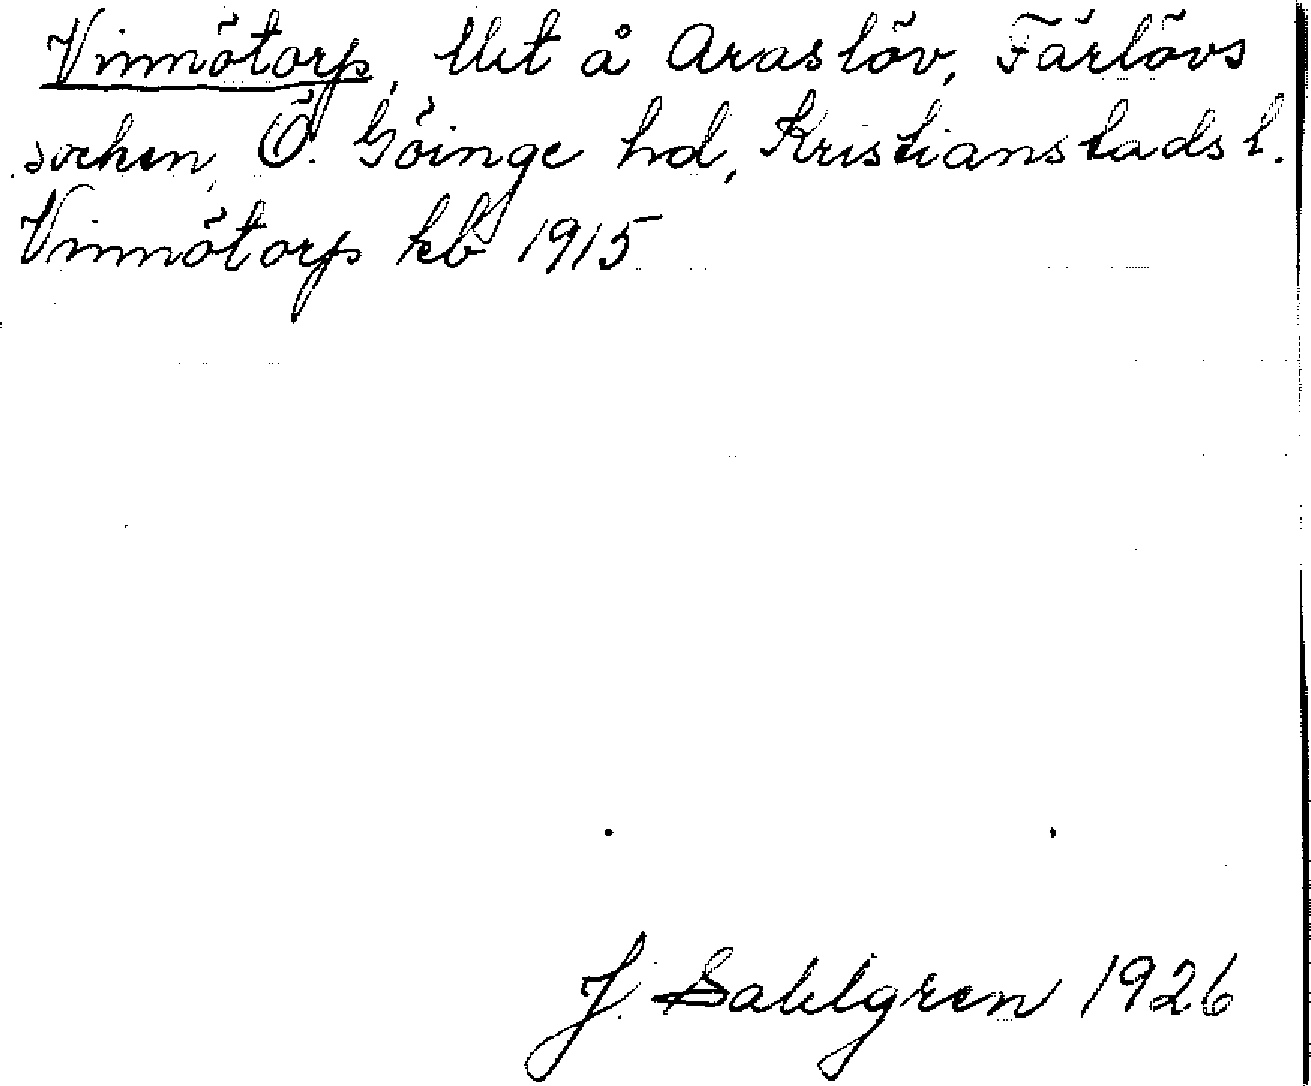 Vinnötorp, Utet å Araslöv, Färlövs
socken, Ö. Göinge hd, Kristianstads l.
Vinnötorp kb 1915
J. Sahlgren 1926